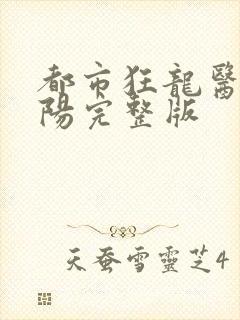 都市狂龍醫
陽完整版
天蚕雪靈芝4